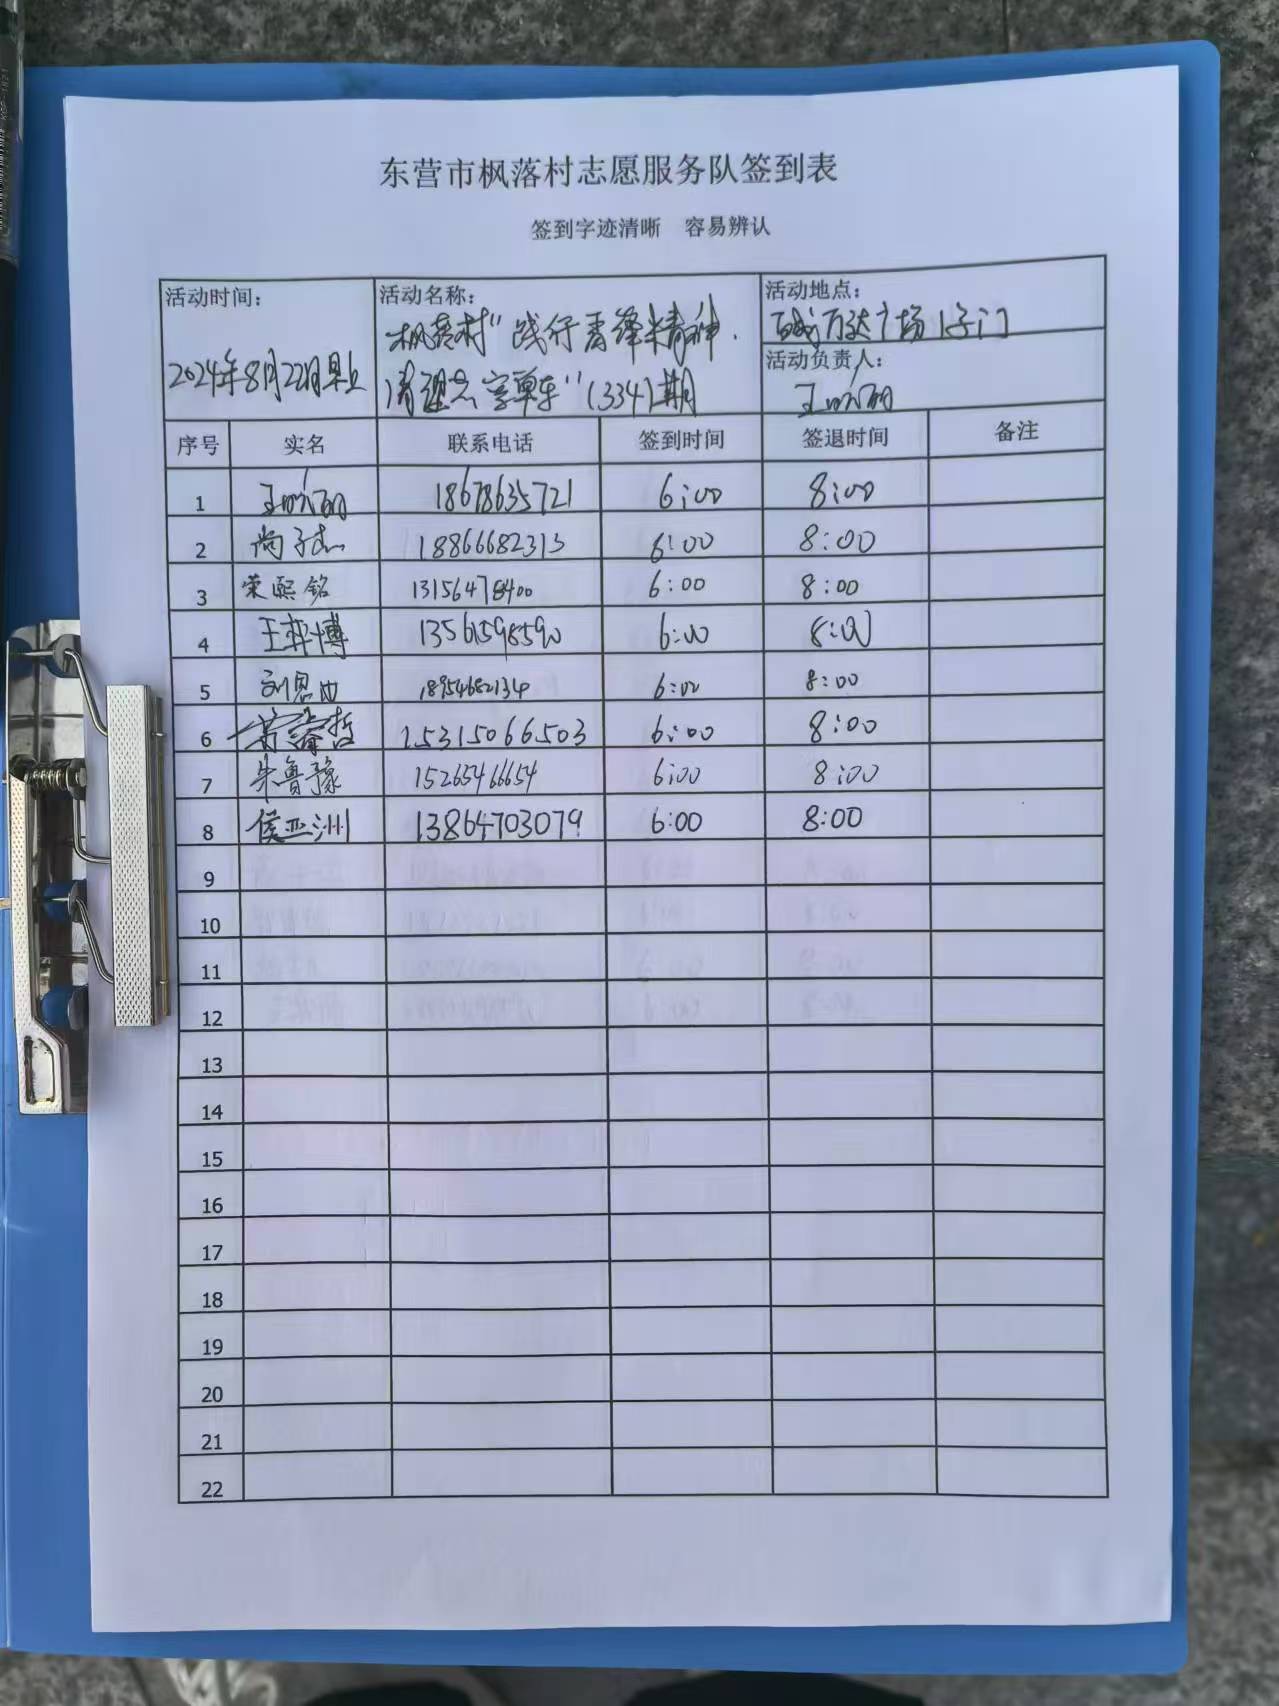 东营市枫落村志愿服务队签到表
签到字迹清晰 容易辨认
活动时间：
2024年8月22日早上
活动名称：
枫落村"践行雷锋精神.
清理共享单车"(334)期
活动地点：
万达广场1号门
活动负责人：
序号 实名 联系电话 签到时间 签退时间 备注
1 18678635721 6:00 8:00
2 尚子杰 18866682313 6:00 8:00
3 荣熙铭 13156478400 6:00 8:00
4 王弈博 13561598590 6:00 8:00
5 18954682134 6:00 8:00
6 15315066503 6:00 8:00
7 朱鲁豫 15265466654 6:00 8:00
8 侯亚洲 13864703079 6:00 8:00
9
10
11
12
13
14
15
16
17
18
19
20
21
22